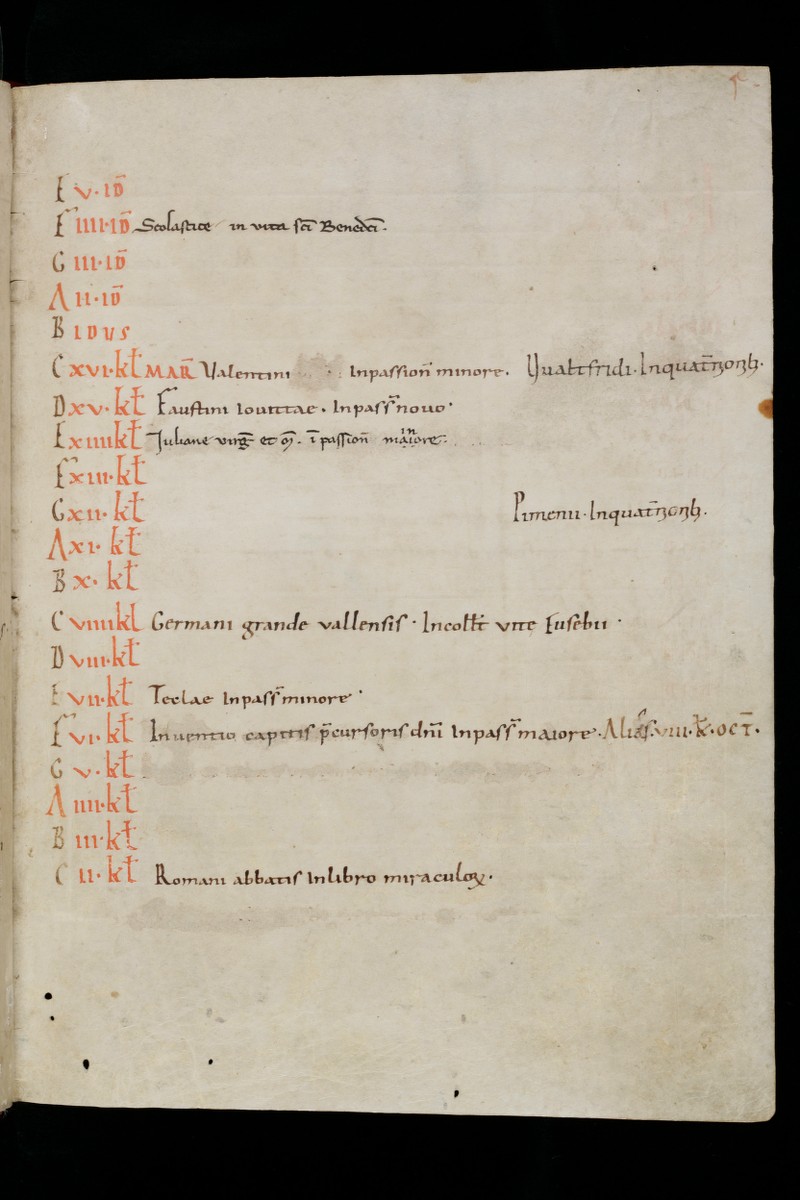 E v·ID̅
F IIII·ID̅ Scolastice in vita sc̅i Bened̅ci·
G III·ID̅
A II·ID̅
B IDVS
C xvi·kł MAR̅ Valentini · Inpassion̅ minore· Ualtfridi·Inquat̅
D xv·kł Faustini iouittae· Inpass̅ nouo·
E xiiii kł Iuliane virg̅ et m̅· i̅ passion̅ maiore·
F xiii·kł
G xii·kł Pimenii·Inquat̅
A xi·kł
B x·kł
C viiii kł Germani grande vallensis· Incott̅ vite Eusebii·
D viii·kł
E vii·kł Teclae Inpass̅ minore·
F vi·kł Inuentio capitis p̅cursoris dn̅i Inpass̅ maiore· viii·k̅·OCT̅·
G v·kł
A iiii·kł
B iii·kł
C ii·kł Romani abbatis Inlibro miraculoꝝ·